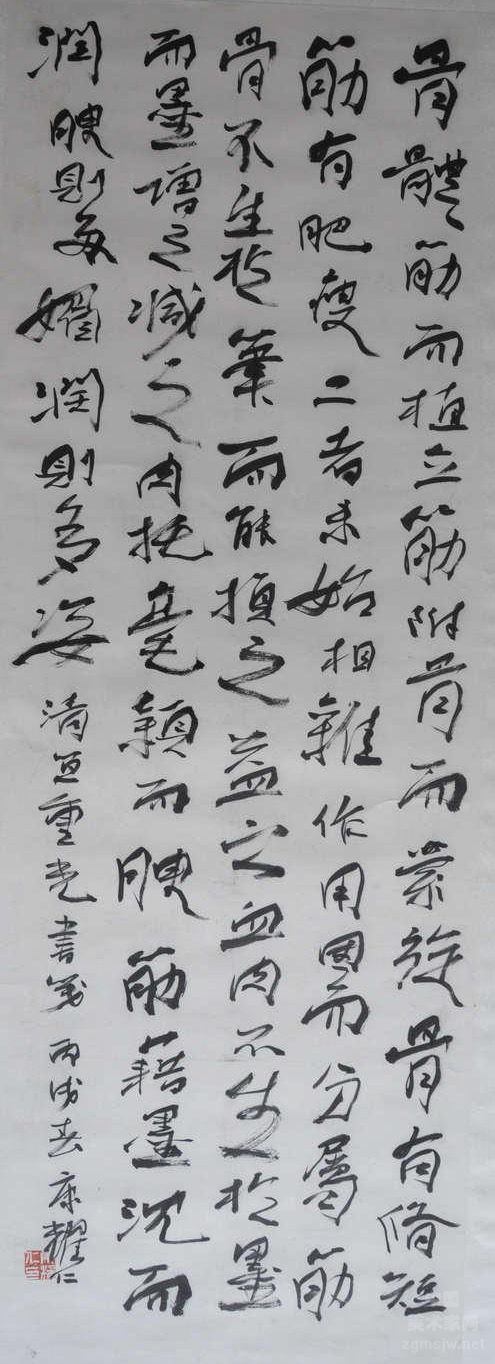 骨體筋而植立筋附骨而縈旋骨有脩短
筋有肥瘦二者未始相離作用因而分屬筋
骨不生於筆而能損之益之血肉不生於墨
而墨增之減之肉托毫穎而腴筋藉墨沈而
潤腴則多媚潤則多姿 清笪重光書筏 丙戌春 康耀仁
美术家网
zgmsjw.net